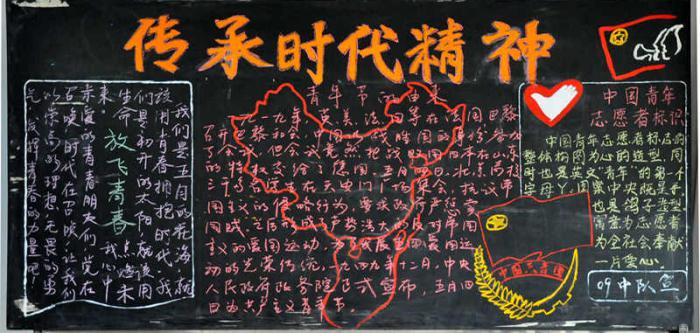 传承时代精神
我们是五月的花海,就
该用青春拥抱的时代,我
们是初开的太阳,就该用
生命点燃未
来。
放飞青春
我心中
亲爱的青年朋友们,党在
召唤,时代在召唤,让我们
以崇高的理想,无畏的勇
气,发挥青春的力量吧!
青年节的由来
一九一九年,英、美、法、日等在法国巴黎
召开巴黎和会,中国以战胜国的身份参加
了会议,但会议竟然把战时日本在山东
的特权交给了德国。五月四日,北京高校
三千多学生在天安门广场集会,抗议帝
国主义的行为,要求政府严惩卖
国贼,之后形成了声势浩大的反对帝国
主义的爱国运动,为了发展爱国运动
的光荣传统,一九四九年十二月,中央
人民政府政务院正式宣布,五月四
日为共产主义青年节。
中国青年
志愿者标识
中国青年志愿者标志的
整体构图为心的造型,同
时也是英文"青年"的第一个
字母Y,图案中央既是手,
也是鸽子造型,
寓意为志愿者
为全社会奉献
一片爱心
中国共青团
09中队宣